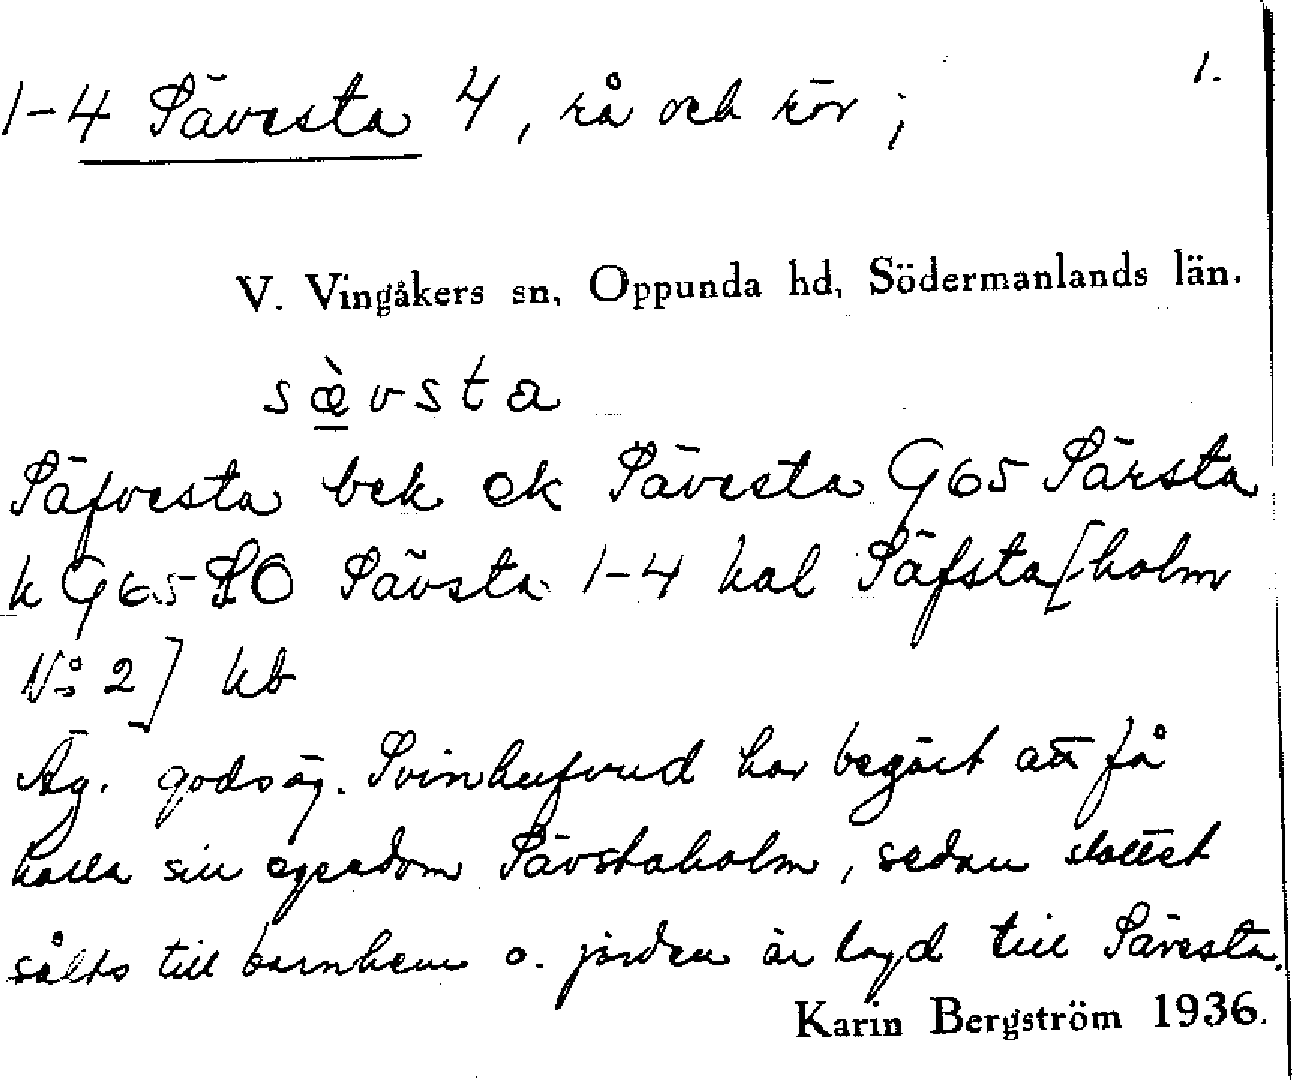 1.
1-4 Sävesta 4, rå och rör;
V. Vingåkers sn, Oppunda hd, Södermanlands län.
sæ̀vsta
Säfvesta bek ek Sävesta G65 Särsta
k G65 SO Sävsta 1-4 hal Säfsta[holm
No 2] kb
Äg. godsäg. Svinhufvud har begärt att få
kalla sin egendom Sävstaholm, sedan slottet
sålts till barnhem o. jorden är lagd till Sävesta.
Karin Bergström 1936.